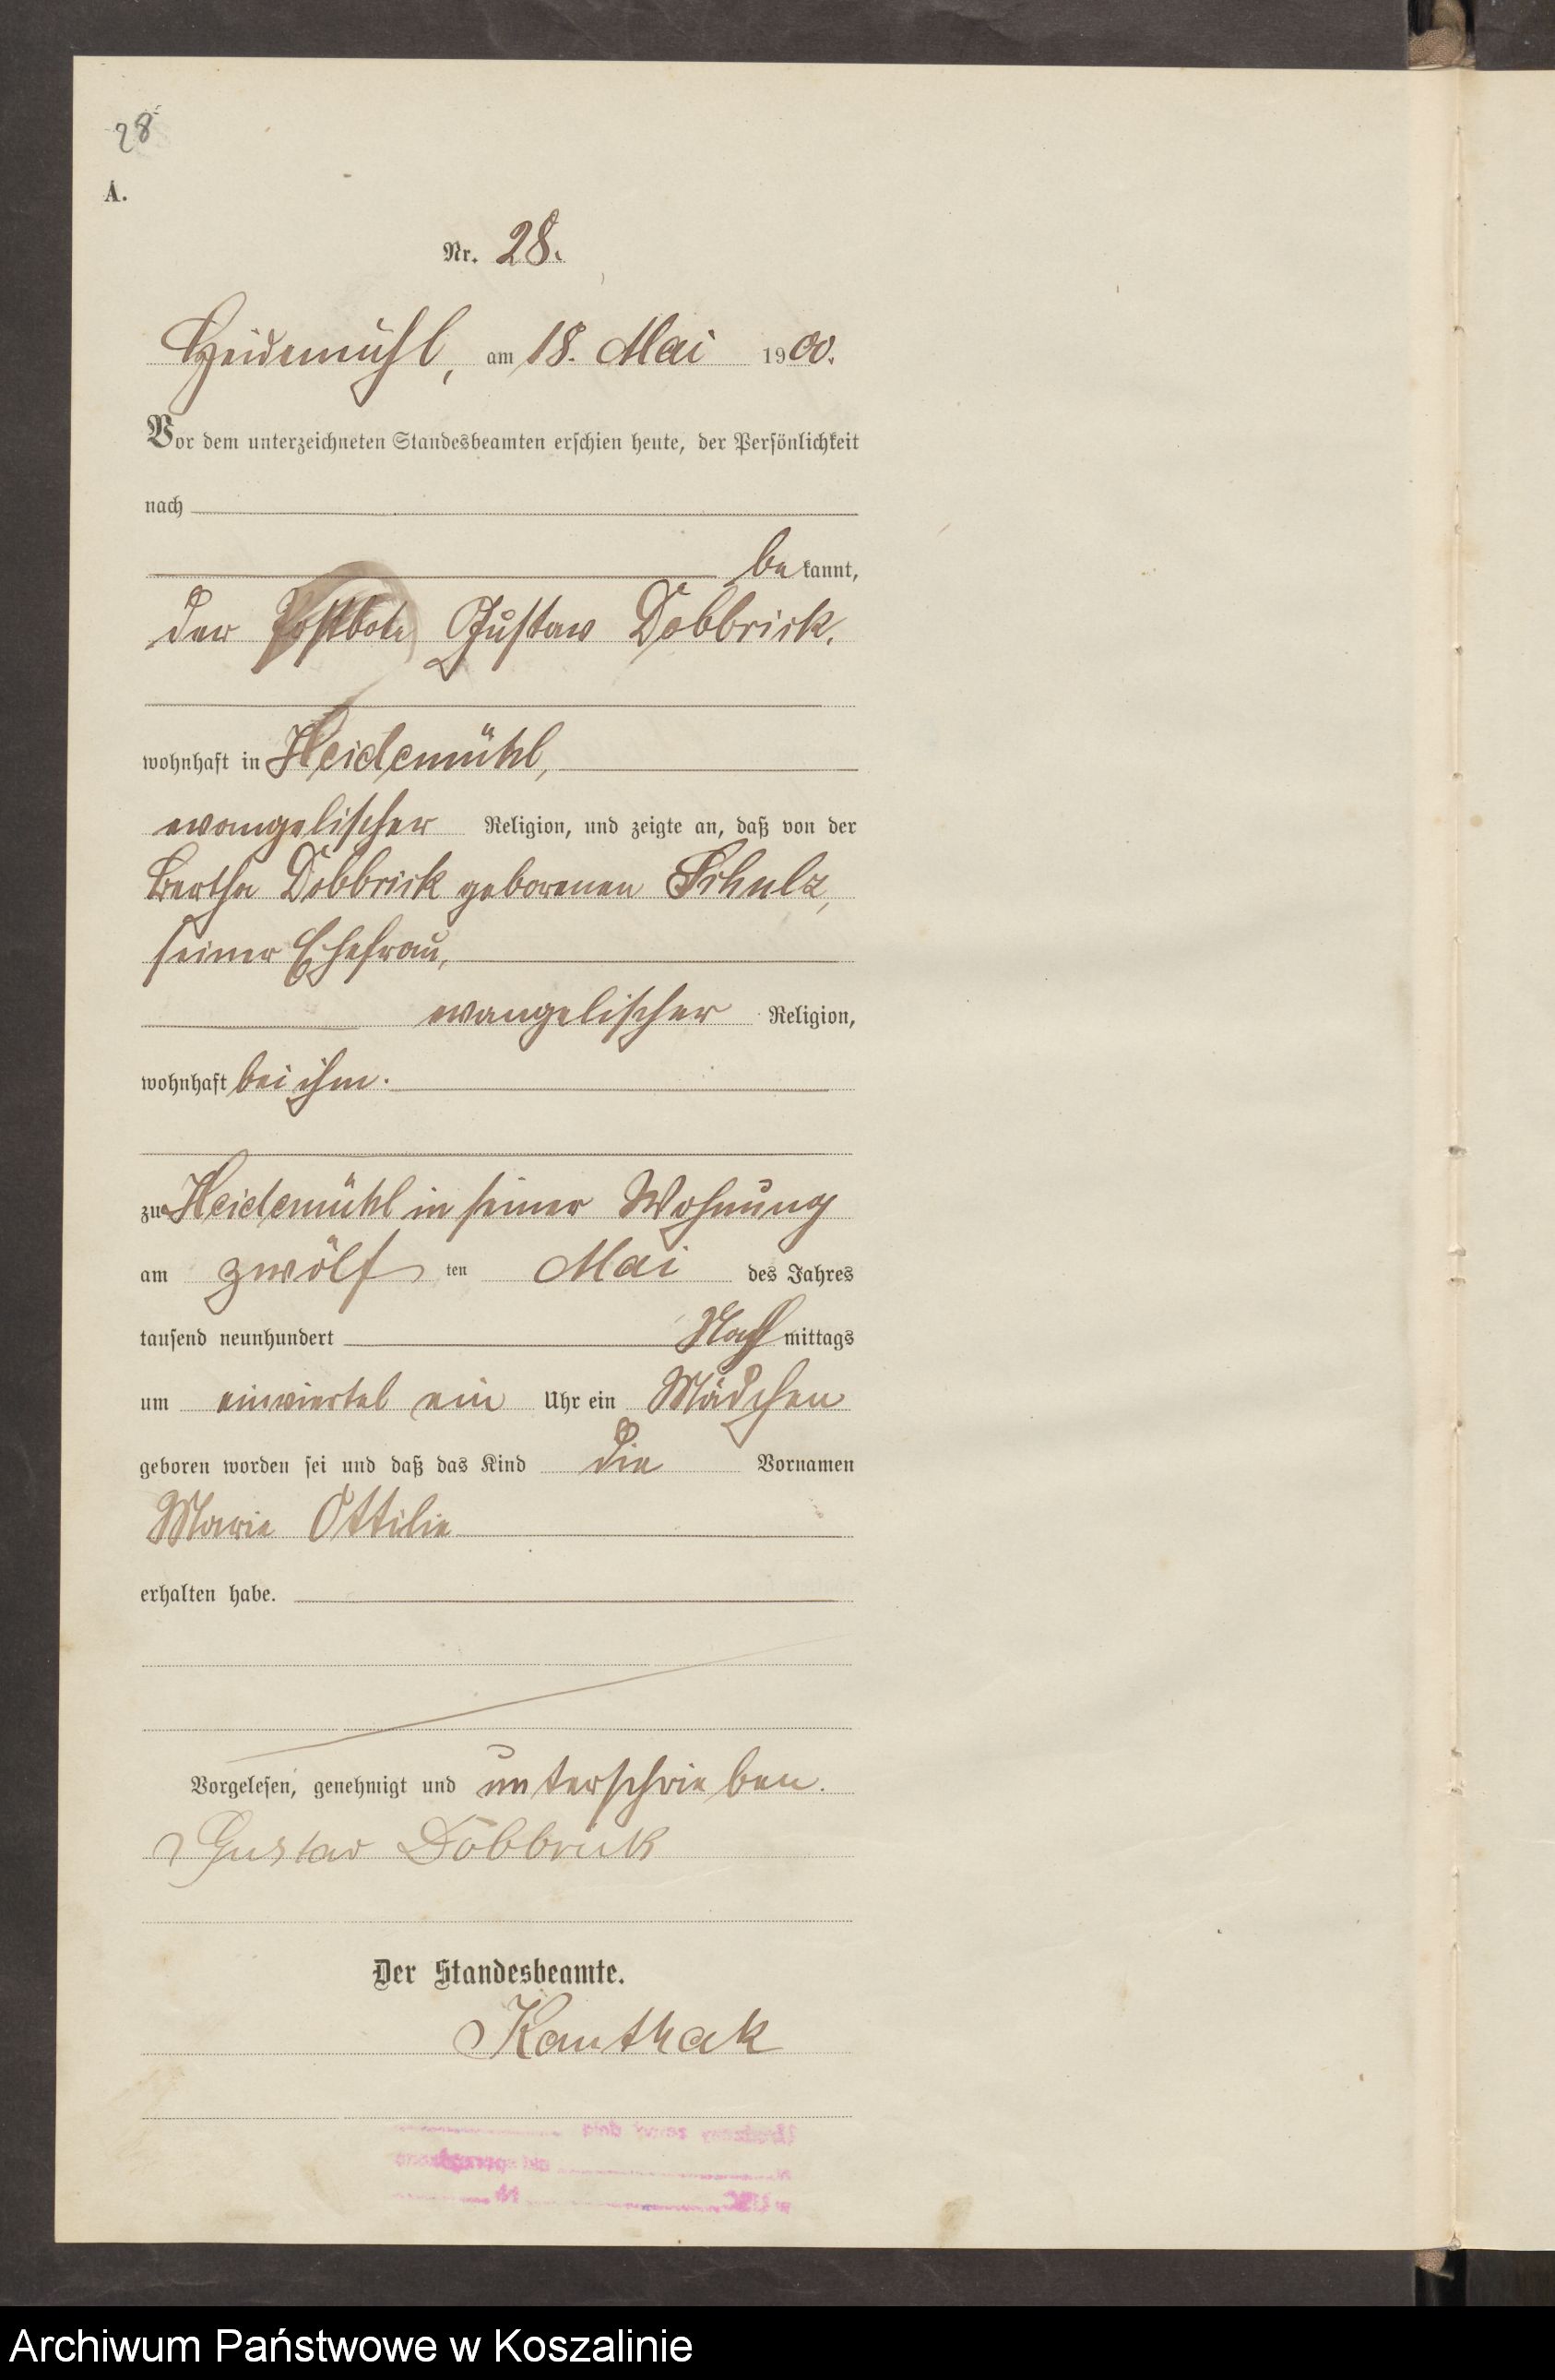 28
A.
Nr. 28.
Heidemühl, am 18. Mai 1900.
Vor dem unterzeichneten Standesbeamten erschien heute, der Persönlichkeit
nach
bekannt,
der Postbote Gustav Dobbrick,
wohnhaft in Heidemühl,
evangelischer Religion, und zeigte an, daß von der
Bertha Dobbrick geborenen Schulz,
seiner Ehefrau,
evangelischer Religion,
wohnhaft bei ihm.
zu Heidemühl in seiner Wohnung
am zwölften Mai des Jahres
tausend neunhundert Nachmittags
um einviertel ein Uhr ein Mädchen
geboren worden sei und daß das Kind die Vornamen
Marie Ottilie
erhalten habe.
Vorgelesen, genehmigt und unterschrieben.
Gustav Dobbrick
Der Standesbeamte.
Kanthak
Archiwum Państwowe w Koszalinie